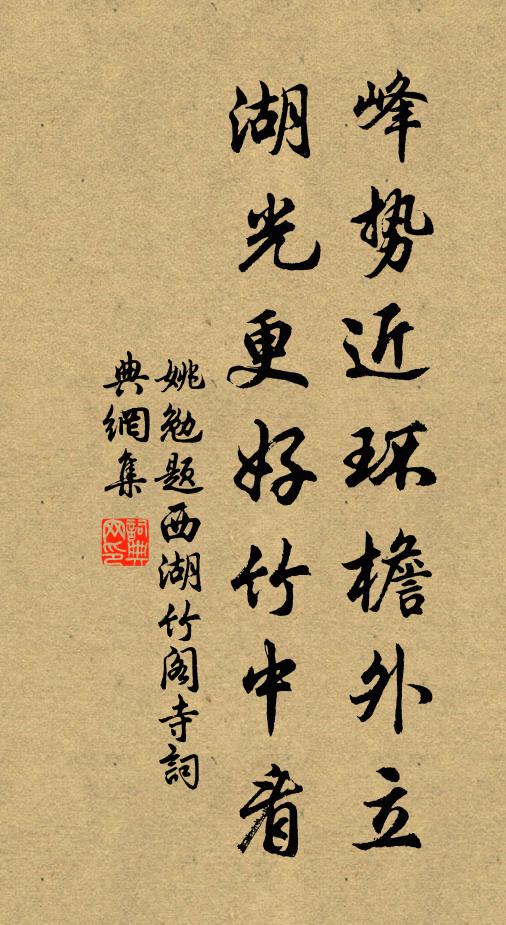 峰势近环檐外立
湖光更好竹中看
姚勉题西湖竹阁寺詞
典網集
詞典网印